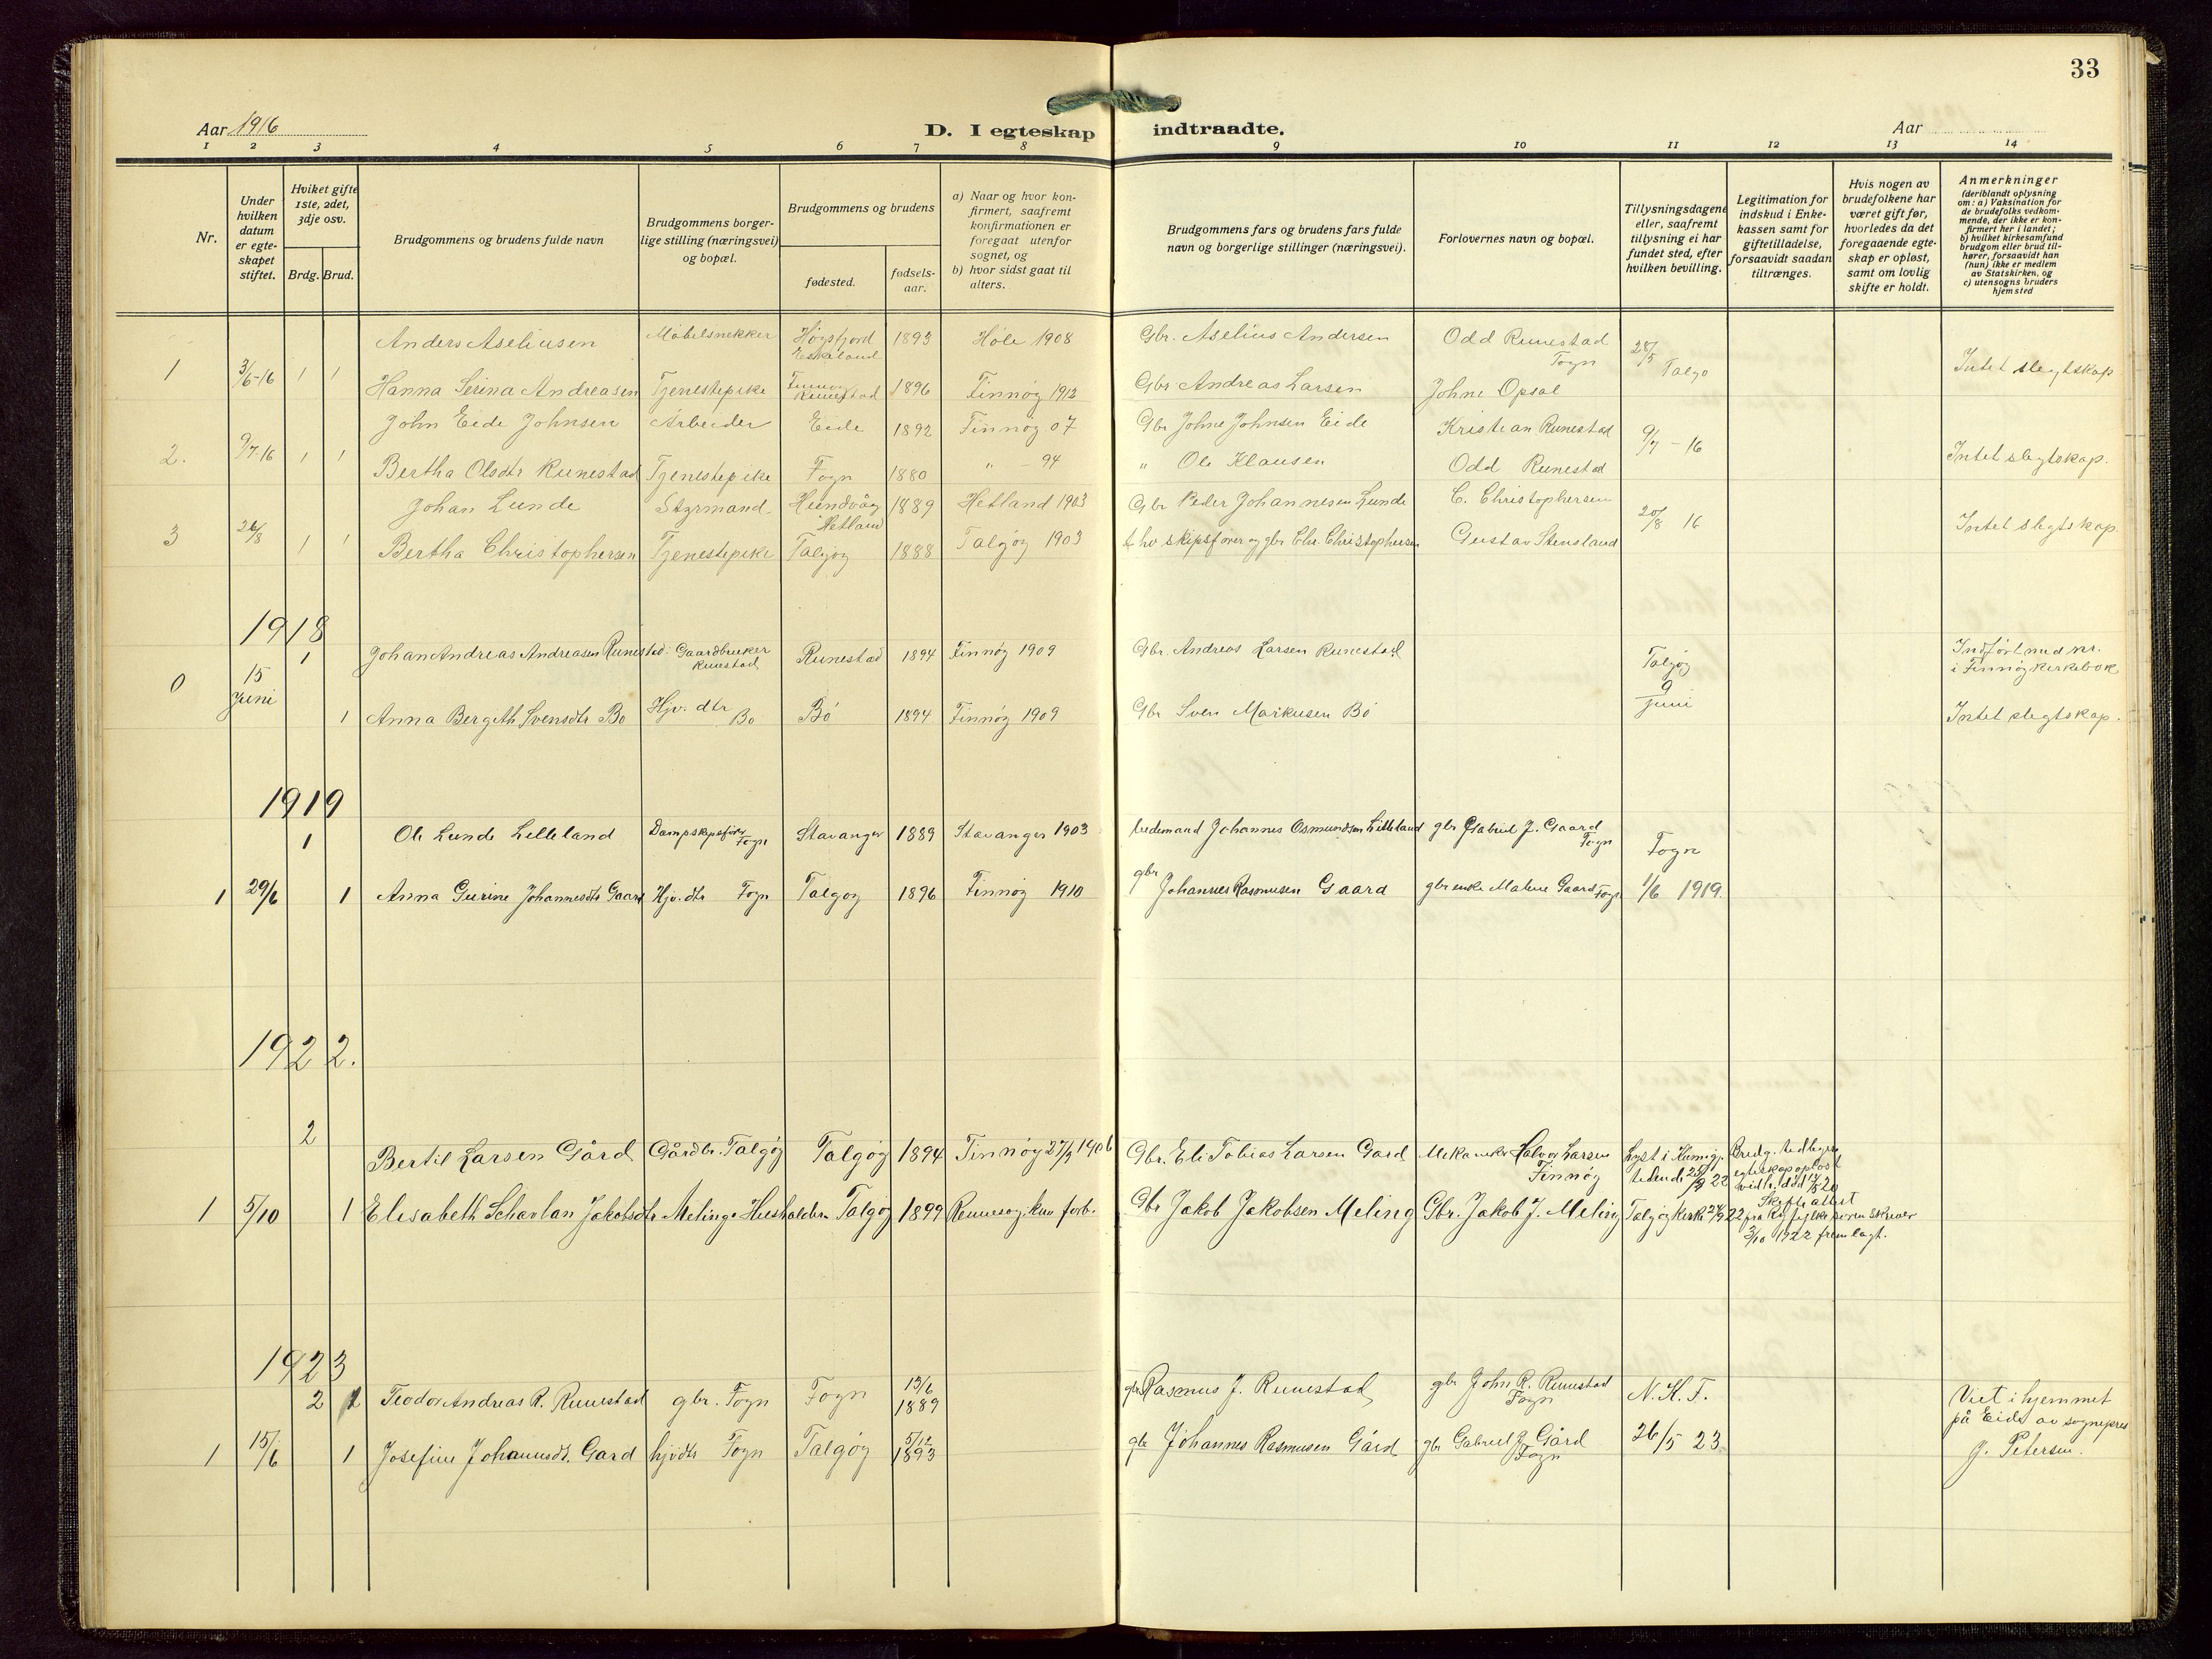 33
Aar 1916
D. I egteskap indtraadte.
Aar
1 2 3 4 5 6 7 8 9 10 11 12 13 14
Nr.
Under hvilken datum er egte-skapet stiftet.
Hvilket gifte 1ste, 2det, 3dje osv.
Brdg. Brud.
Brudgommens og brudens fulde navn
Brudgommens borger-lige stilling (næringsvei) og bopæl.
Brudgommens og brudens
fødested.
fødsels-aar.
a) Naar og hvor kon-firmert, saafremt konfirmationen er foregaat utenfor sognet, og
b) hvor sidst gaat til alters.
Brudgommens fars og brudens fars fulde navn og borgerlige stillinger (næringsvei).
Forlovernes navn og bopæl.
Tillysningsdagene eller, saafremt tillysning ei har fundet sted, efter hvilken bevilling.
Legitimation for indskud i Enke-kassen samt for giftetilladelse, forsaavidt saadan tiltrænges.
Hvis nogen av brudefolkene har været gift før, hvorledes da det foregaaende egte-skap er opløst, samt om lovlig skifte er holdt.
Anmerkninger (deriblandt oplysning om: a) Vaksination for de brudefolks vedkom-mende, der ikke er kon-firmert her i landet; b) hvilket kirkesamfund brudgom eller brud til-hører, forsaavidt han (hun) ikke er medlem av Statskirken, og c) utensogns bruders hjemsted
Anders Aseliusen Møbelsnekker Høgsfjord Eskeland 1893 Høle 1908 Gbr. Aselius Andersen Odd Runestad Fogn
1 3/6-16 1 1 28/5 Talgø Intet slegtskap
Hanna Serina Andreasen Tjenestepike Finnøy Runestad 1896 Finnøy 1912 Gbr Andreas Larsen Johne Opsal
John Eide Johnsen Arbeider Eide 1892 Finnøy 07 Gbr Johne Johnsen Eide Kristian Runestad
2. 9/7-16 1 1 9/7 - 16 Intet slegtskap.
Bertha Olsdtr Runestad Tjenestepike Fogn 1880 " - 94 " Ole Klausen Odd Runestad
Johan Lunde Styrmand Hundvåg Hetland 1889 Hetland 1903 Gbr Peder Johannesen Lunde C. Christophersen
3 26/8 1 1 20/8 16 Intet slegtskap.
Bertha Christophersen Tjenestepike Talgøy 1888 Talgøy 1903 skipsfører og gbr Chr. Christophersen Gustav Stensland
1918
1 Johan Andreas Andreasen Runestad: Gaardbruker Runestad Runestad 1894 Finnøy 1909 Gbr. Andreas Larsen Runestad Talgøy Indført med nr. i Finnøy kirkebok
0 15 Juni
1 Anna Bergith Svensdtr Bø Hjv. dtr Bø Bø 1894 Finnøy 1909 Gbr Sven Markusen Bø 9 juni Intet slegtskap.
1919
1 Ole Lunde Lilleland Dampskipsfører Fogn Stavanger 1889 Stavanger 1903 Johannes Osmundsen Lilleland gbr Gabriel J. Gaard Fogn Fogn
1 29/6 1 Anna Gurine Johannesdtr Gaard Hjv. dtr Fogn Talgøy 1896 Finnøy 1910 gbr Johannes Rasmusen Gaard gbr enke Malene Gaard Fogn 1/6 1919.
1922.
2 Bertil Larsen Gård Gårdbr. Talgøy Talgøy 1894 Finnøy 27/9 1906 Gbr. Eli Tobias Larsen Gard Mekaniker Halvor Larsen Finnøy Lyst i Kunngj. tidende 25/9 22 Brudg. tidligere egteskap opløst
1 5/10 1 Elisabeth Scharlan Jakobsdtr Meling Husholderske Talgøy 1899 Rennesøy. kun forb. Gbr Jakob Jakobsen Meling Gbr. Jakob J. Meling Talgøy kirke 24/9 22 Skifteattest fra sorenskriver 3/10 1922 fremlagt.
1923
2 Teodor Andreas R. Runestad gbr. Fogn Fogn 13/6 1889 gbr Rasmus J. Runestad gbr John R. Runestad Fogn N.K.T. Viet i hjemmet på Eide av sognepres
1 15/6 1 Josefine Johannesdt. Gard hjvdtr Fogn Talgøy 5/12 1893 gbr Johannes Rasmusen Gård gbr Gabriel J. Gård Fogn 26/5 23 J. Petersen.